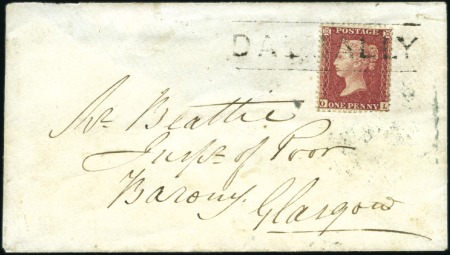 POSTAGE
ONE PENNY
Mr. Beattie
Inspr. of Poor
Barony
Glasgow